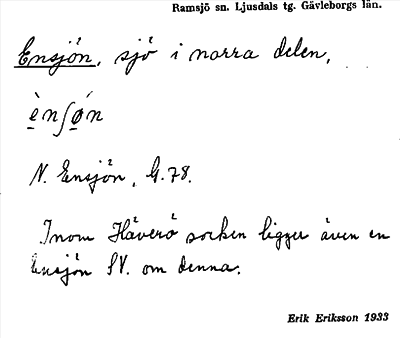 Ramsjö sn. Ljusdals tg. Gävleborgs län.
Ensjön, sjö i norra delen.
è̱nʃǿ̱n
N. Ensjön, G.78.
Inom Häverö socken ligger även en
Ensjön SV. om denna.
Erik Eriksson 1933